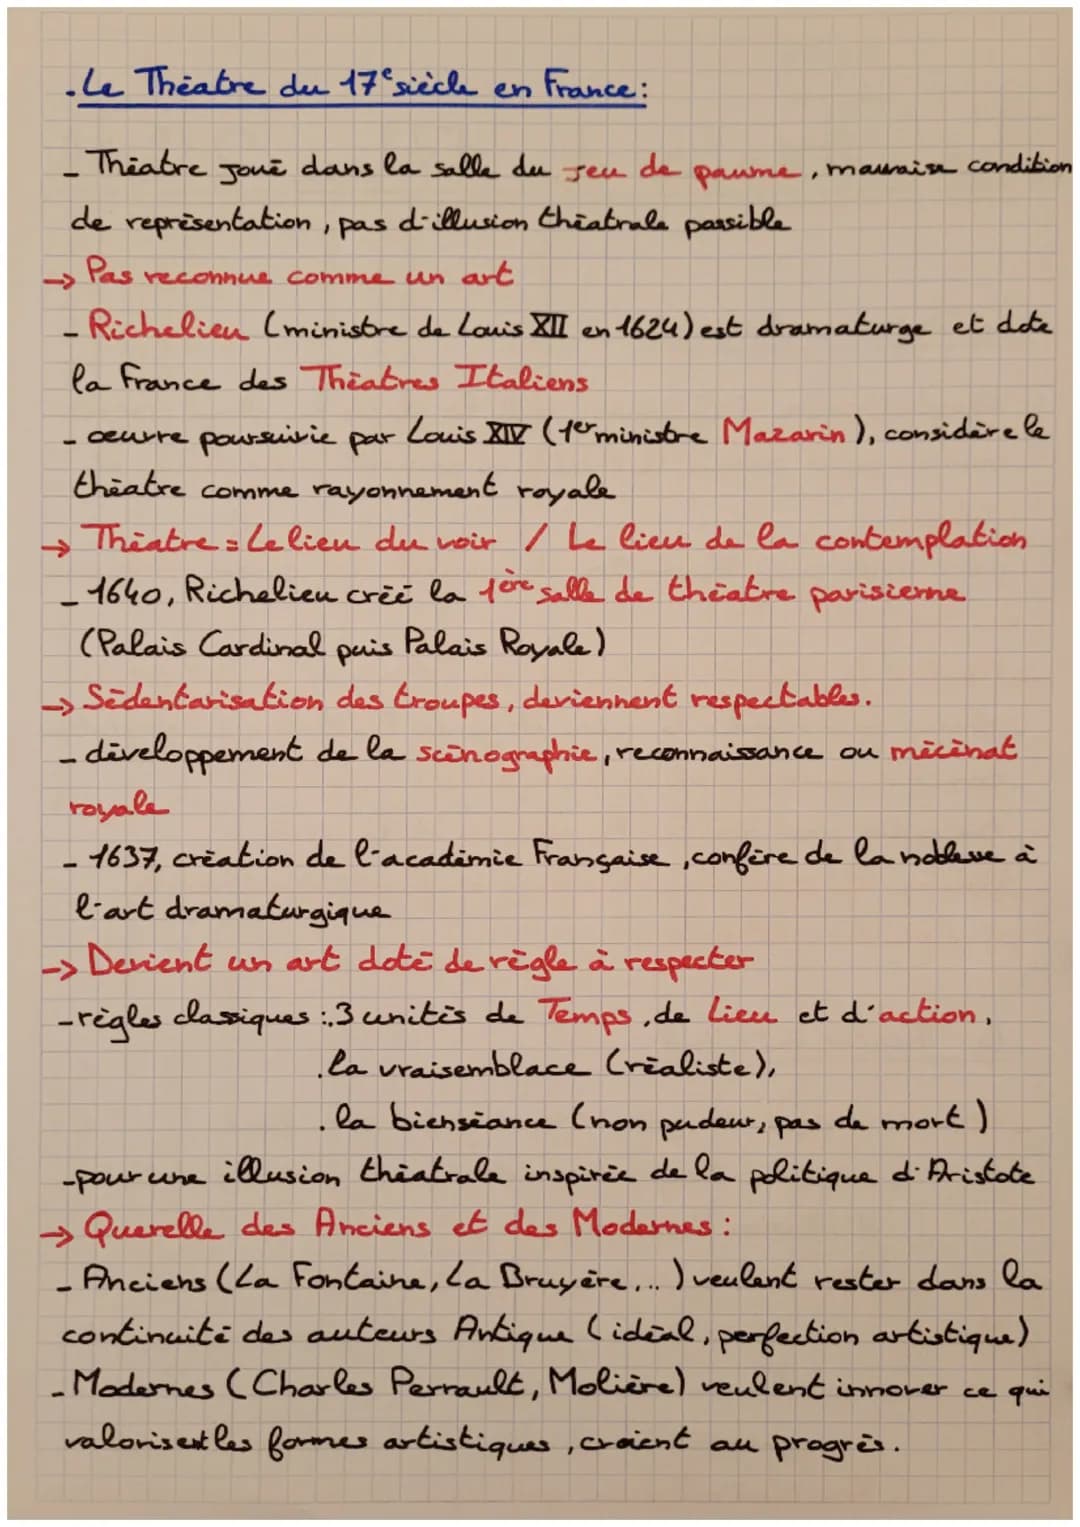 . Le Théatre du 17e siècle en France :
- Théatre joué dans la salle du jeu de paume, mauvaise condition
de représentation, pas d'illusion théatrale possible
→ Pas reconnue comme un art
- Richelieu (ministre de Louis XII en 1624) est dramaturge et dote
la France des Théatres Italiens
- œuvre poursuivie par Louis XIV (1er ministre Mazarin), considère le
théatre comme rayonnement royale
→ Théatre = Le lieu du voir / Le lieu de la contemplation
- 1640, Richelieu créé la 1ère salle de théatre parisienne
(Palais Cardinal puis Palais Royale)
→ Sédentarisation des troupes, deviennent respectables.
- développement de la scénographie, reconnaissance ou mécénat
royale
- 1637, création de l'académie Française, confère de la noblesse à
l'art dramaturgique
→ Devient un art doté de règle à respecter
- règles classiques : . 3 unités de Temps, de Lieu et d'action,
. la vraisemblace (réaliste),
. la bienséance (non pudeur, pas de mort)
- pour une illusion théatrale inspirée de la politique d'Aristote
→ Querelle des Anciens et des Modernes :
- Anciens (La Fontaine, La Bruyère, ...) veulent rester dans la
continuité des auteurs Antique (idéal, perfection artistique)
- Modernes (Charles Perrault, Molière) veulent innover ce qui
valorisent les formes artistiques, croient au progrès.